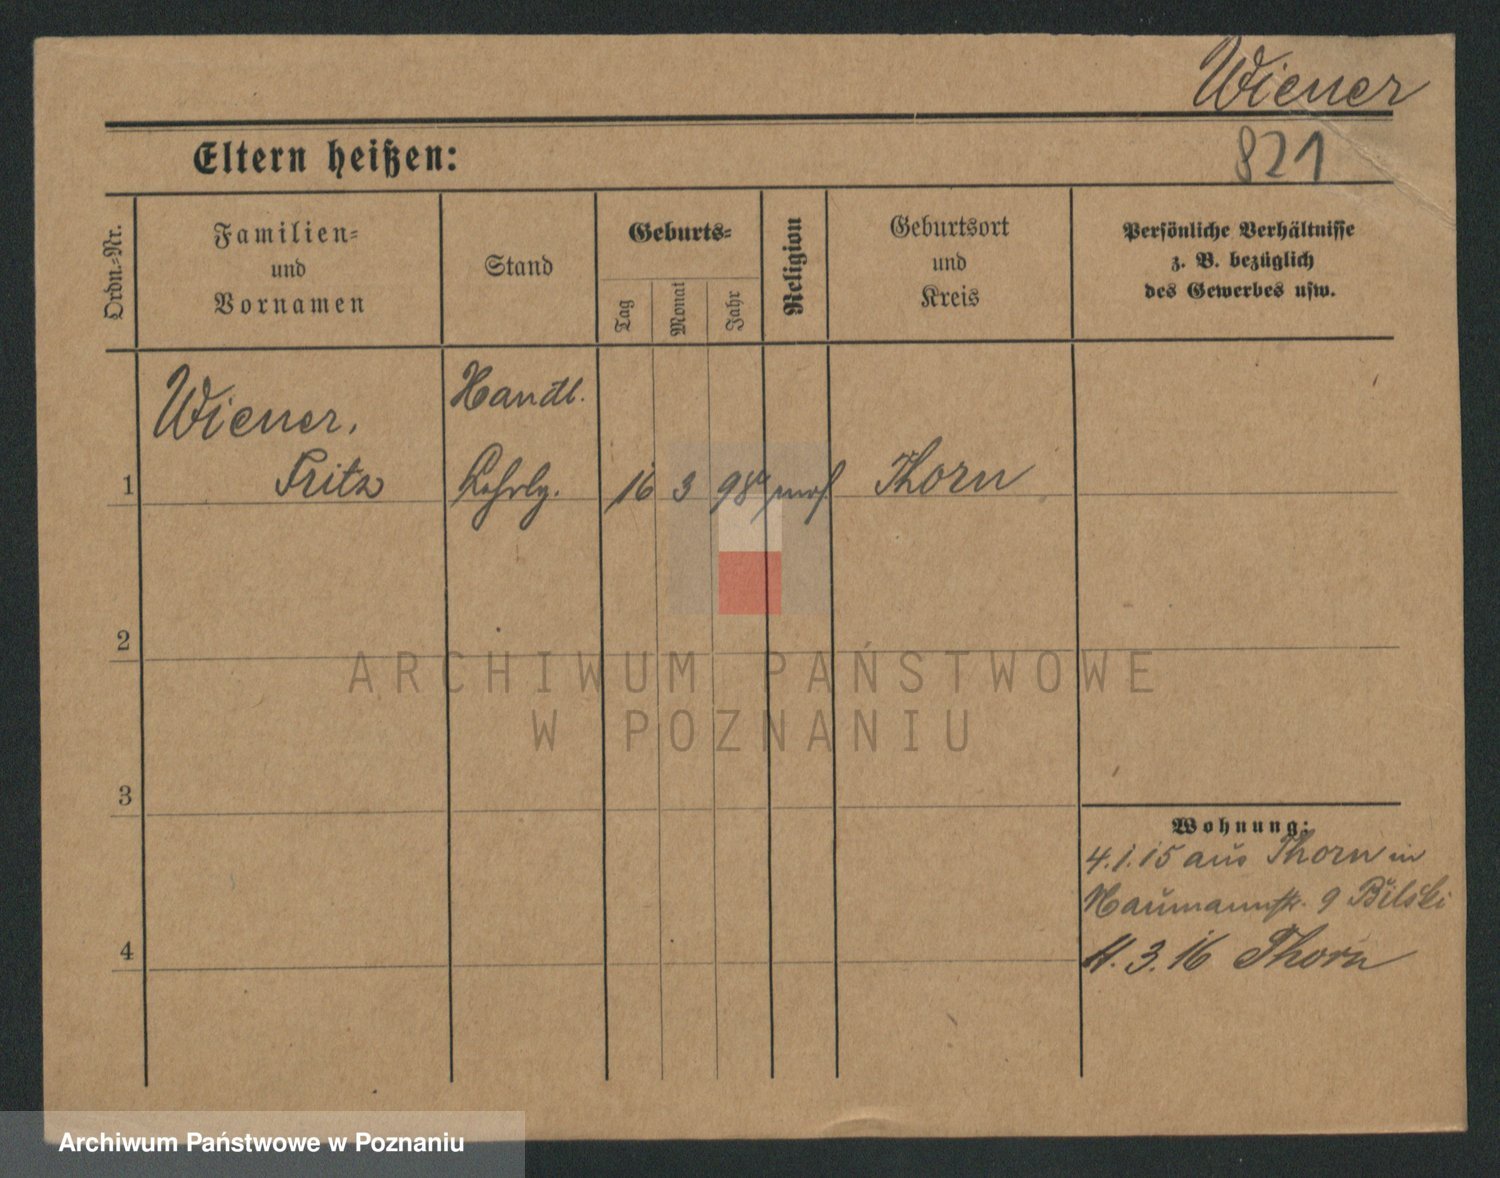 Wiener
Eltern heißen:
821
Ordn.-Nr.
Familien-
und
Vornamen
Stand
Geburts-
Tag
Monat
Jahr
Religion
Geburtsort
und
Kreis
Persönliche Verhältnisse
z. B. bezüglich
des Gewerbes usw.
Wiener,
Fritz
Handl.
Lehrlg.
1
16
3
98
mos
Thorn
2
ARCHIWUM PAŃSTWOWE
W POZNANIU
3
Wohnung:
4.1.15 aus Thorn in
Naumannstr. 9 Bilski
4
11.3.16 Thorn
Archiwum Państwowe w Poznaniu